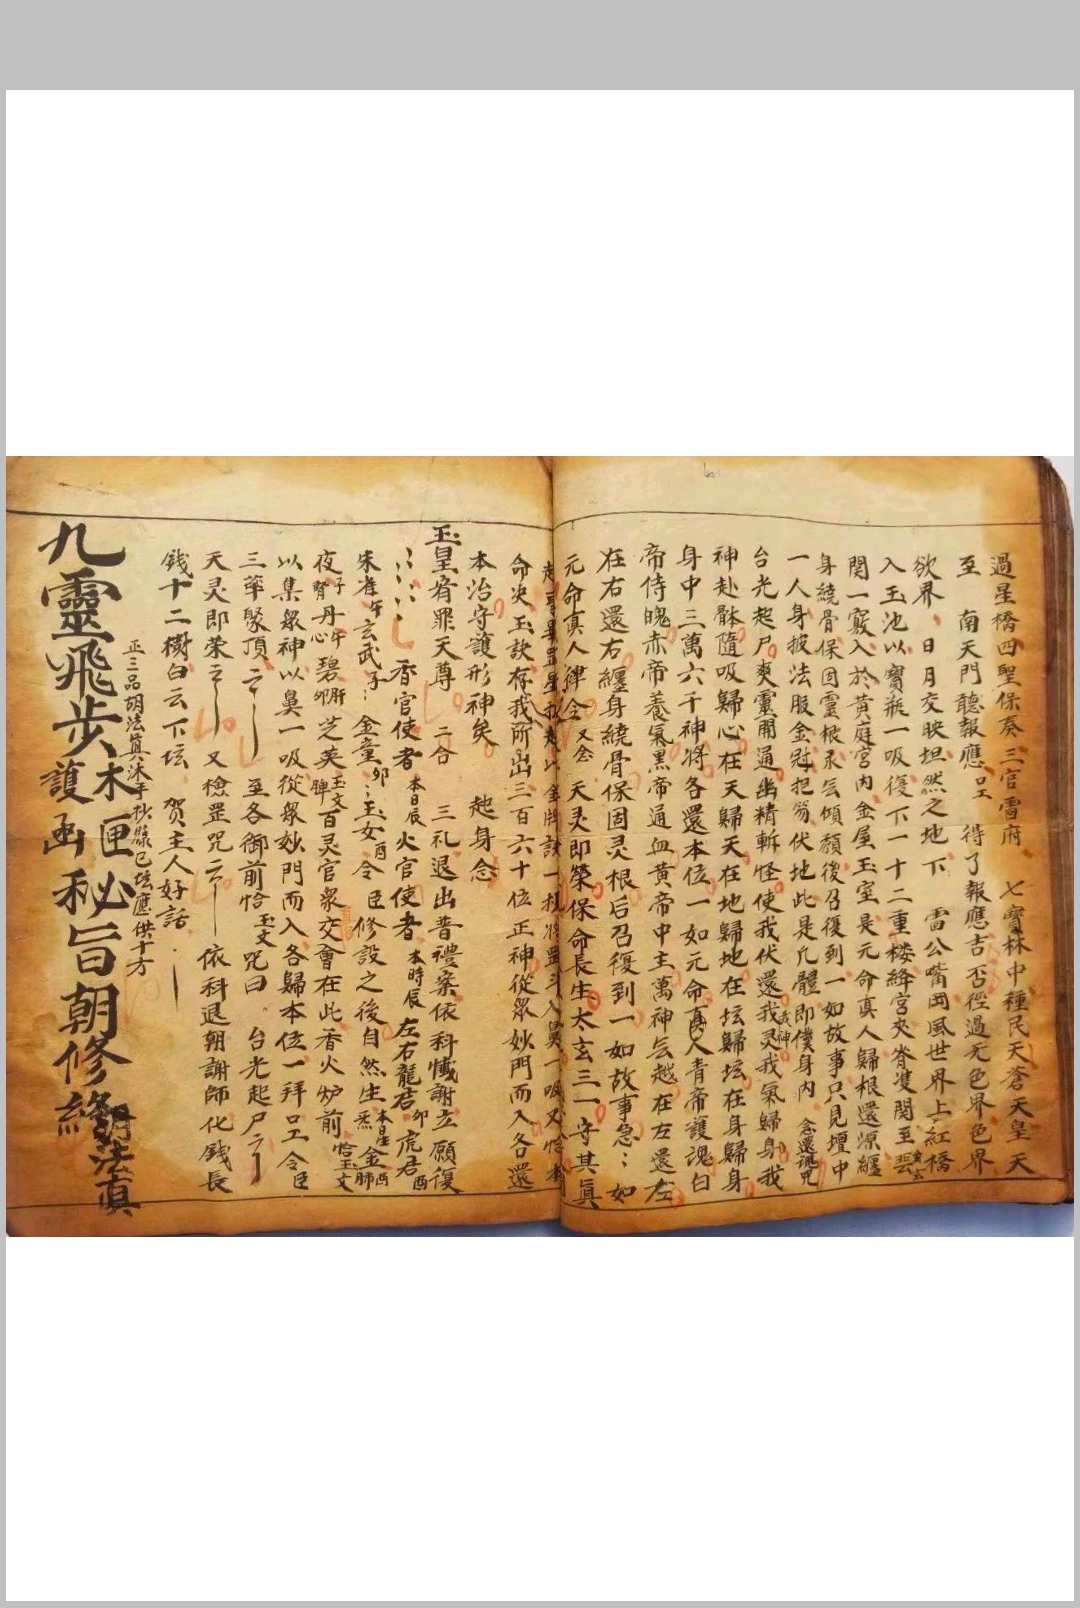 過星橋四聖保奏三官雷府 七寶林中種民天蒼天皇天
至 南天門聽報應 得了報應吉否徑過无色界色界
欲界 日月交映坦然之地下 雷公嘴岡風世界上紅橋
入玉池以寶瓶一吸復下一十二重楼絳宮夾脊双関至
関一竅入於黃庭宮內金屋玉室是元命真人歸根還源纏
身繞骨保固靈根永无傾頹後召復到一如故事只見壇中
一人身披法服金冠把笏伏地此是凡體即僕身內 念還魂咒
台光起尸爽靈開通幽精斬怪使我伏還我灵我氣歸身我
神赴骵隨吸歸心在天歸天在地歸地在坛歸坛在身歸身
身中三萬六千神將各還本位一如元命真人青帝護魂白
帝侍魄赤帝養氣黑帝通血黃帝中主萬神无越在左還左
在右還右纏身繞骨保固灵根后召復到一如故事急 如
元命真人律令 又念 天灵即榮保命長生太玄三一守其眞
命决玉訣存我所出三百六十位正神從眾妙門而入各還
本治守護形神矣 起身念
玉皇宥罪天尊 二合 三礼退出普禮案依科懺謝立願復
香官使者 本日辰 火官使者 本時辰 左右龍君 卯 虎君 酉
朱雀 午 玄武 子 金童 卯 玉女 酉 令臣修設之後自然生
夜 丹 心 碧 肝 芝英 脾 百灵官衆交會在此香火炉前
以集衆神以鼻一吸從衆妙門而入各歸本位一拜口工令臣
三華聚頂 云 至各御前恰 玉文 咒曰 台光起尸云
天灵即榮云 又檢罡咒云 依科退朝謝師化錢長
錢十二樹白云下坛 贺主人好話
正三品胡法眞沐手抄錄已坛應供十方
九靈飛步木匣秘旨朝修終
護函
胡法真